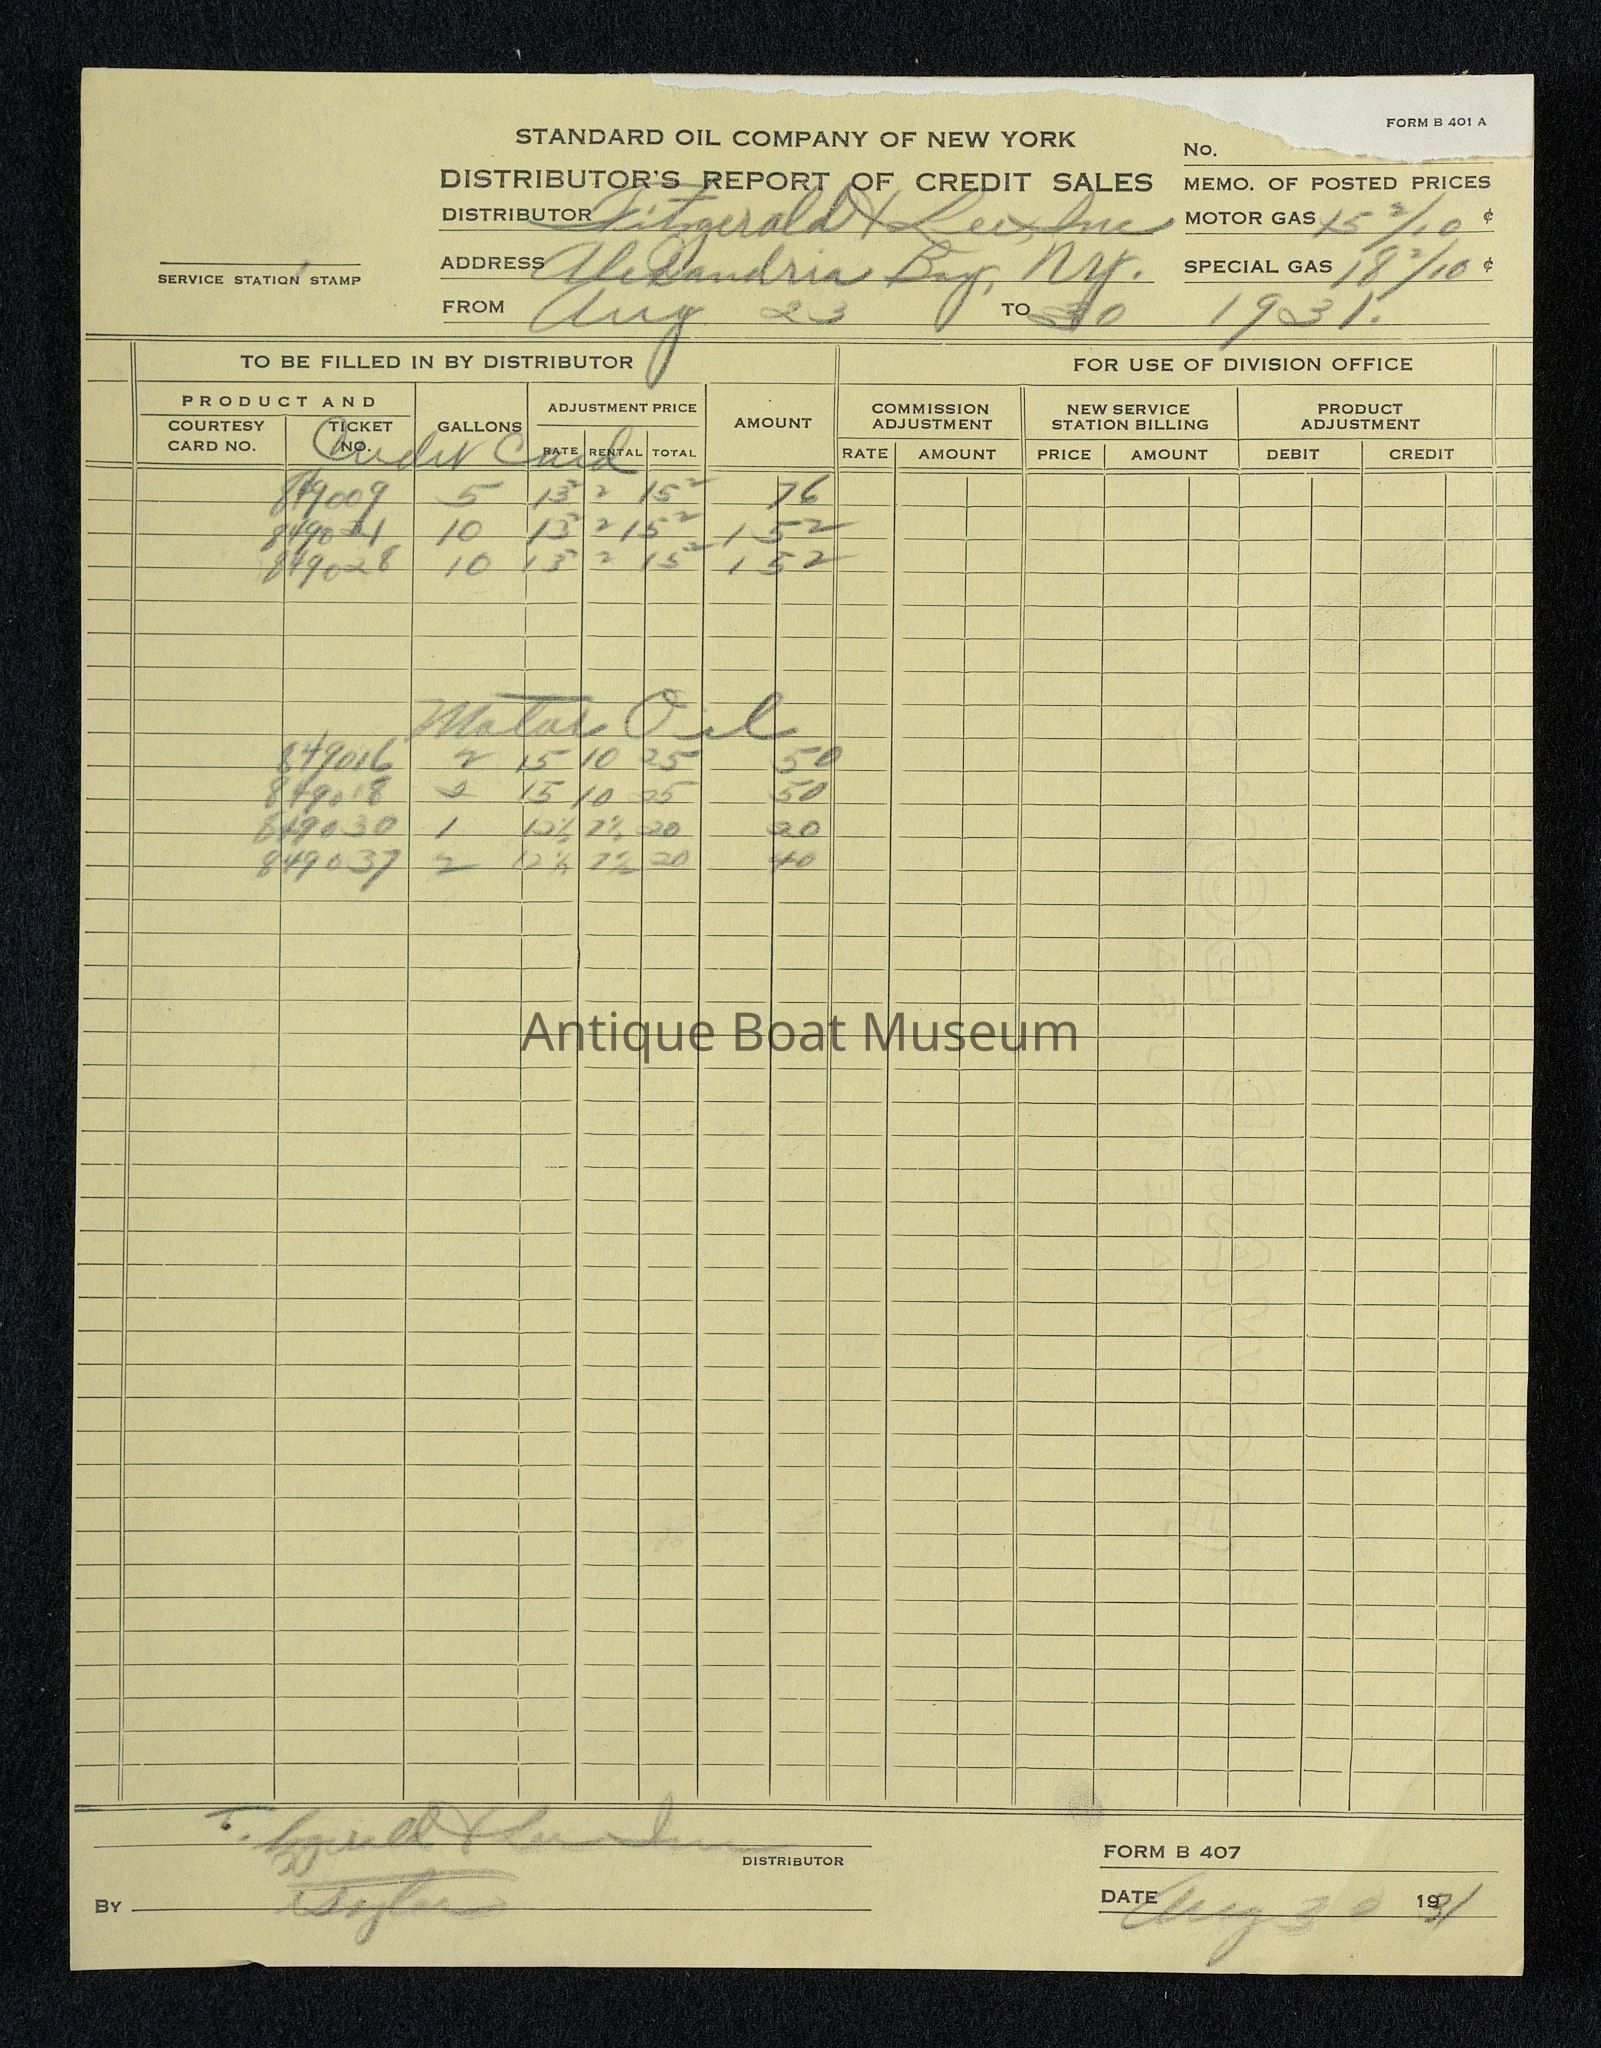 FORM B 401 A
STANDARD OIL COMPANY OF NEW YORK
No.
DISTRIBUTOR'S REPORT OF CREDIT SALES
MEMO. OF POSTED PRICES
DISTRIBUTOR Fitzgerald & Lee, Inc
MOTOR GAS 15 2/10 ¢
ADDRESS Alexandria Bay, N.Y.
SPECIAL GAS 18 2/10 ¢
SERVICE STATION STAMP
FROM Aug 23 TO 30 1931.
TO BE FILLED IN BY DISTRIBUTOR
FOR USE OF DIVISION OFFICE
PRODUCT AND
COURTESY CARD NO.
TICKET NO.
GALLONS
ADJUSTMENT PRICE
RATE RENTAL TOTAL
AMOUNT
COMMISSION ADJUSTMENT
RATE AMOUNT
NEW SERVICE STATION BILLING
PRICE AMOUNT
PRODUCT ADJUSTMENT
DEBIT CREDIT
Credit Card
849009 5 13² 2 15² 76
849021 10 13² 2 15² 1 52
849028 10 13² 2 15² 1 52
Motor Oil
849016 2 15 10 25 50
849018 2 15 10 25 50
849030 1 12½ 7½ 20 20
849037 2 12½ 7½ 20 40
Antique Boat Museum
Fitzgerald & Lee Inc
DISTRIBUTOR
FORM B 407
By Taylor
DATE Aug 30 1931